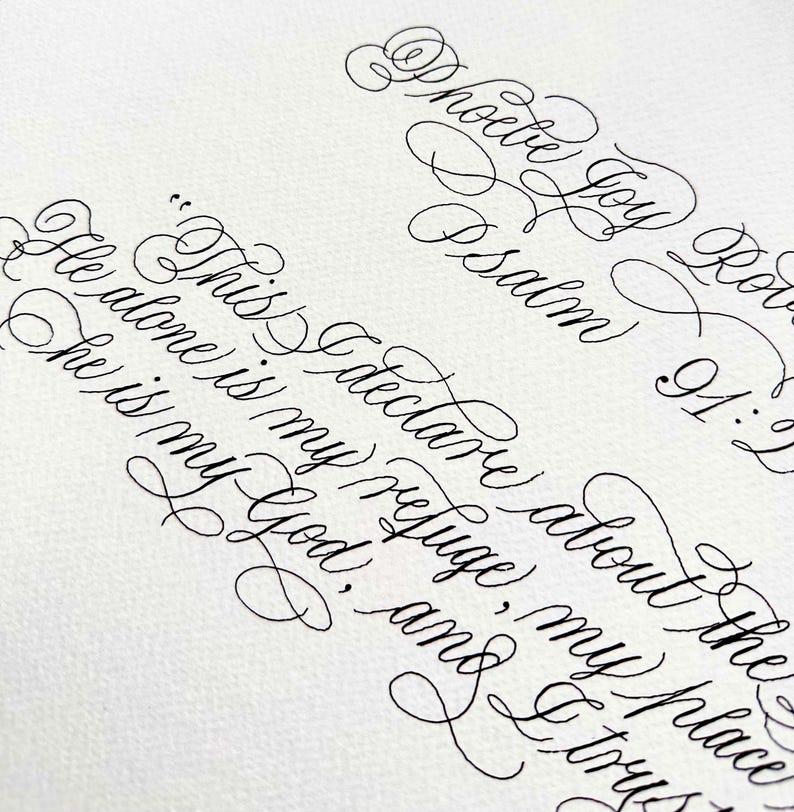 Phoebe Joy
Psalm 91:2
"This I declare about the
He alone is my refuge, my place
he is my God, and I trus